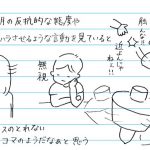 月の反抗的な態度や
ハラハラさせるような言動を見ていると
触んな!!
近よんじゃねェ!!
無視
スのとれない
コマのようだなぁと思う